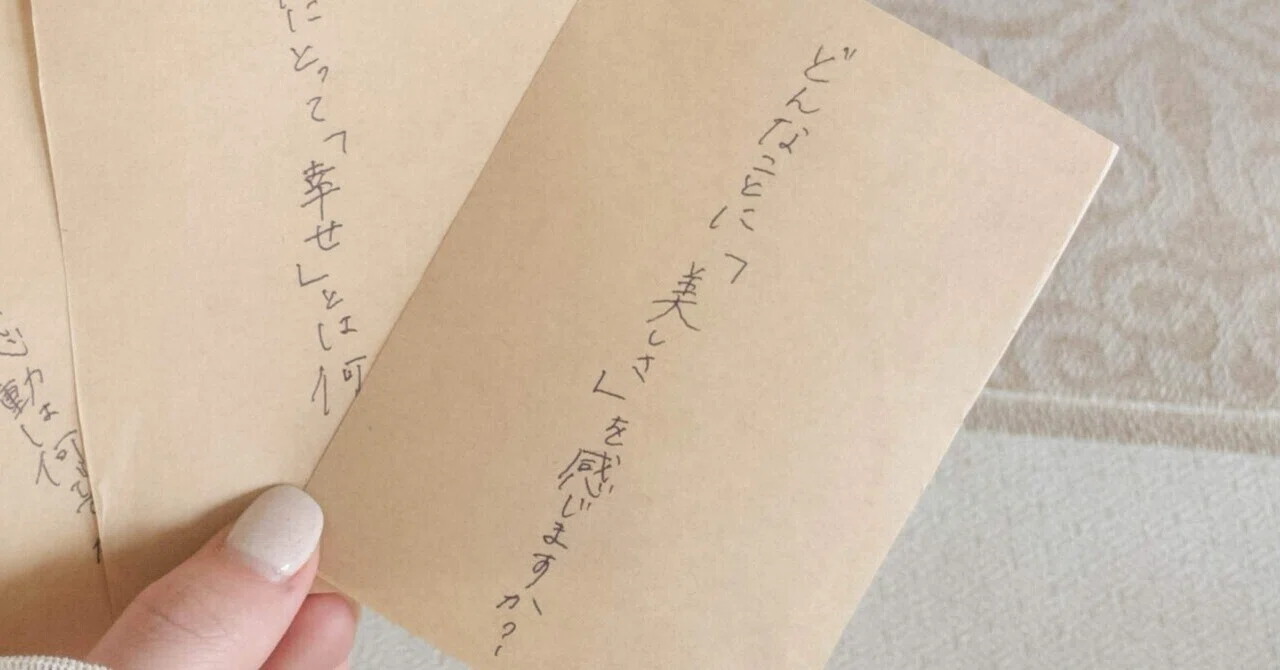 どんなことに「美しさ」を感じますか?
にとって「幸せ」とは何
動は何